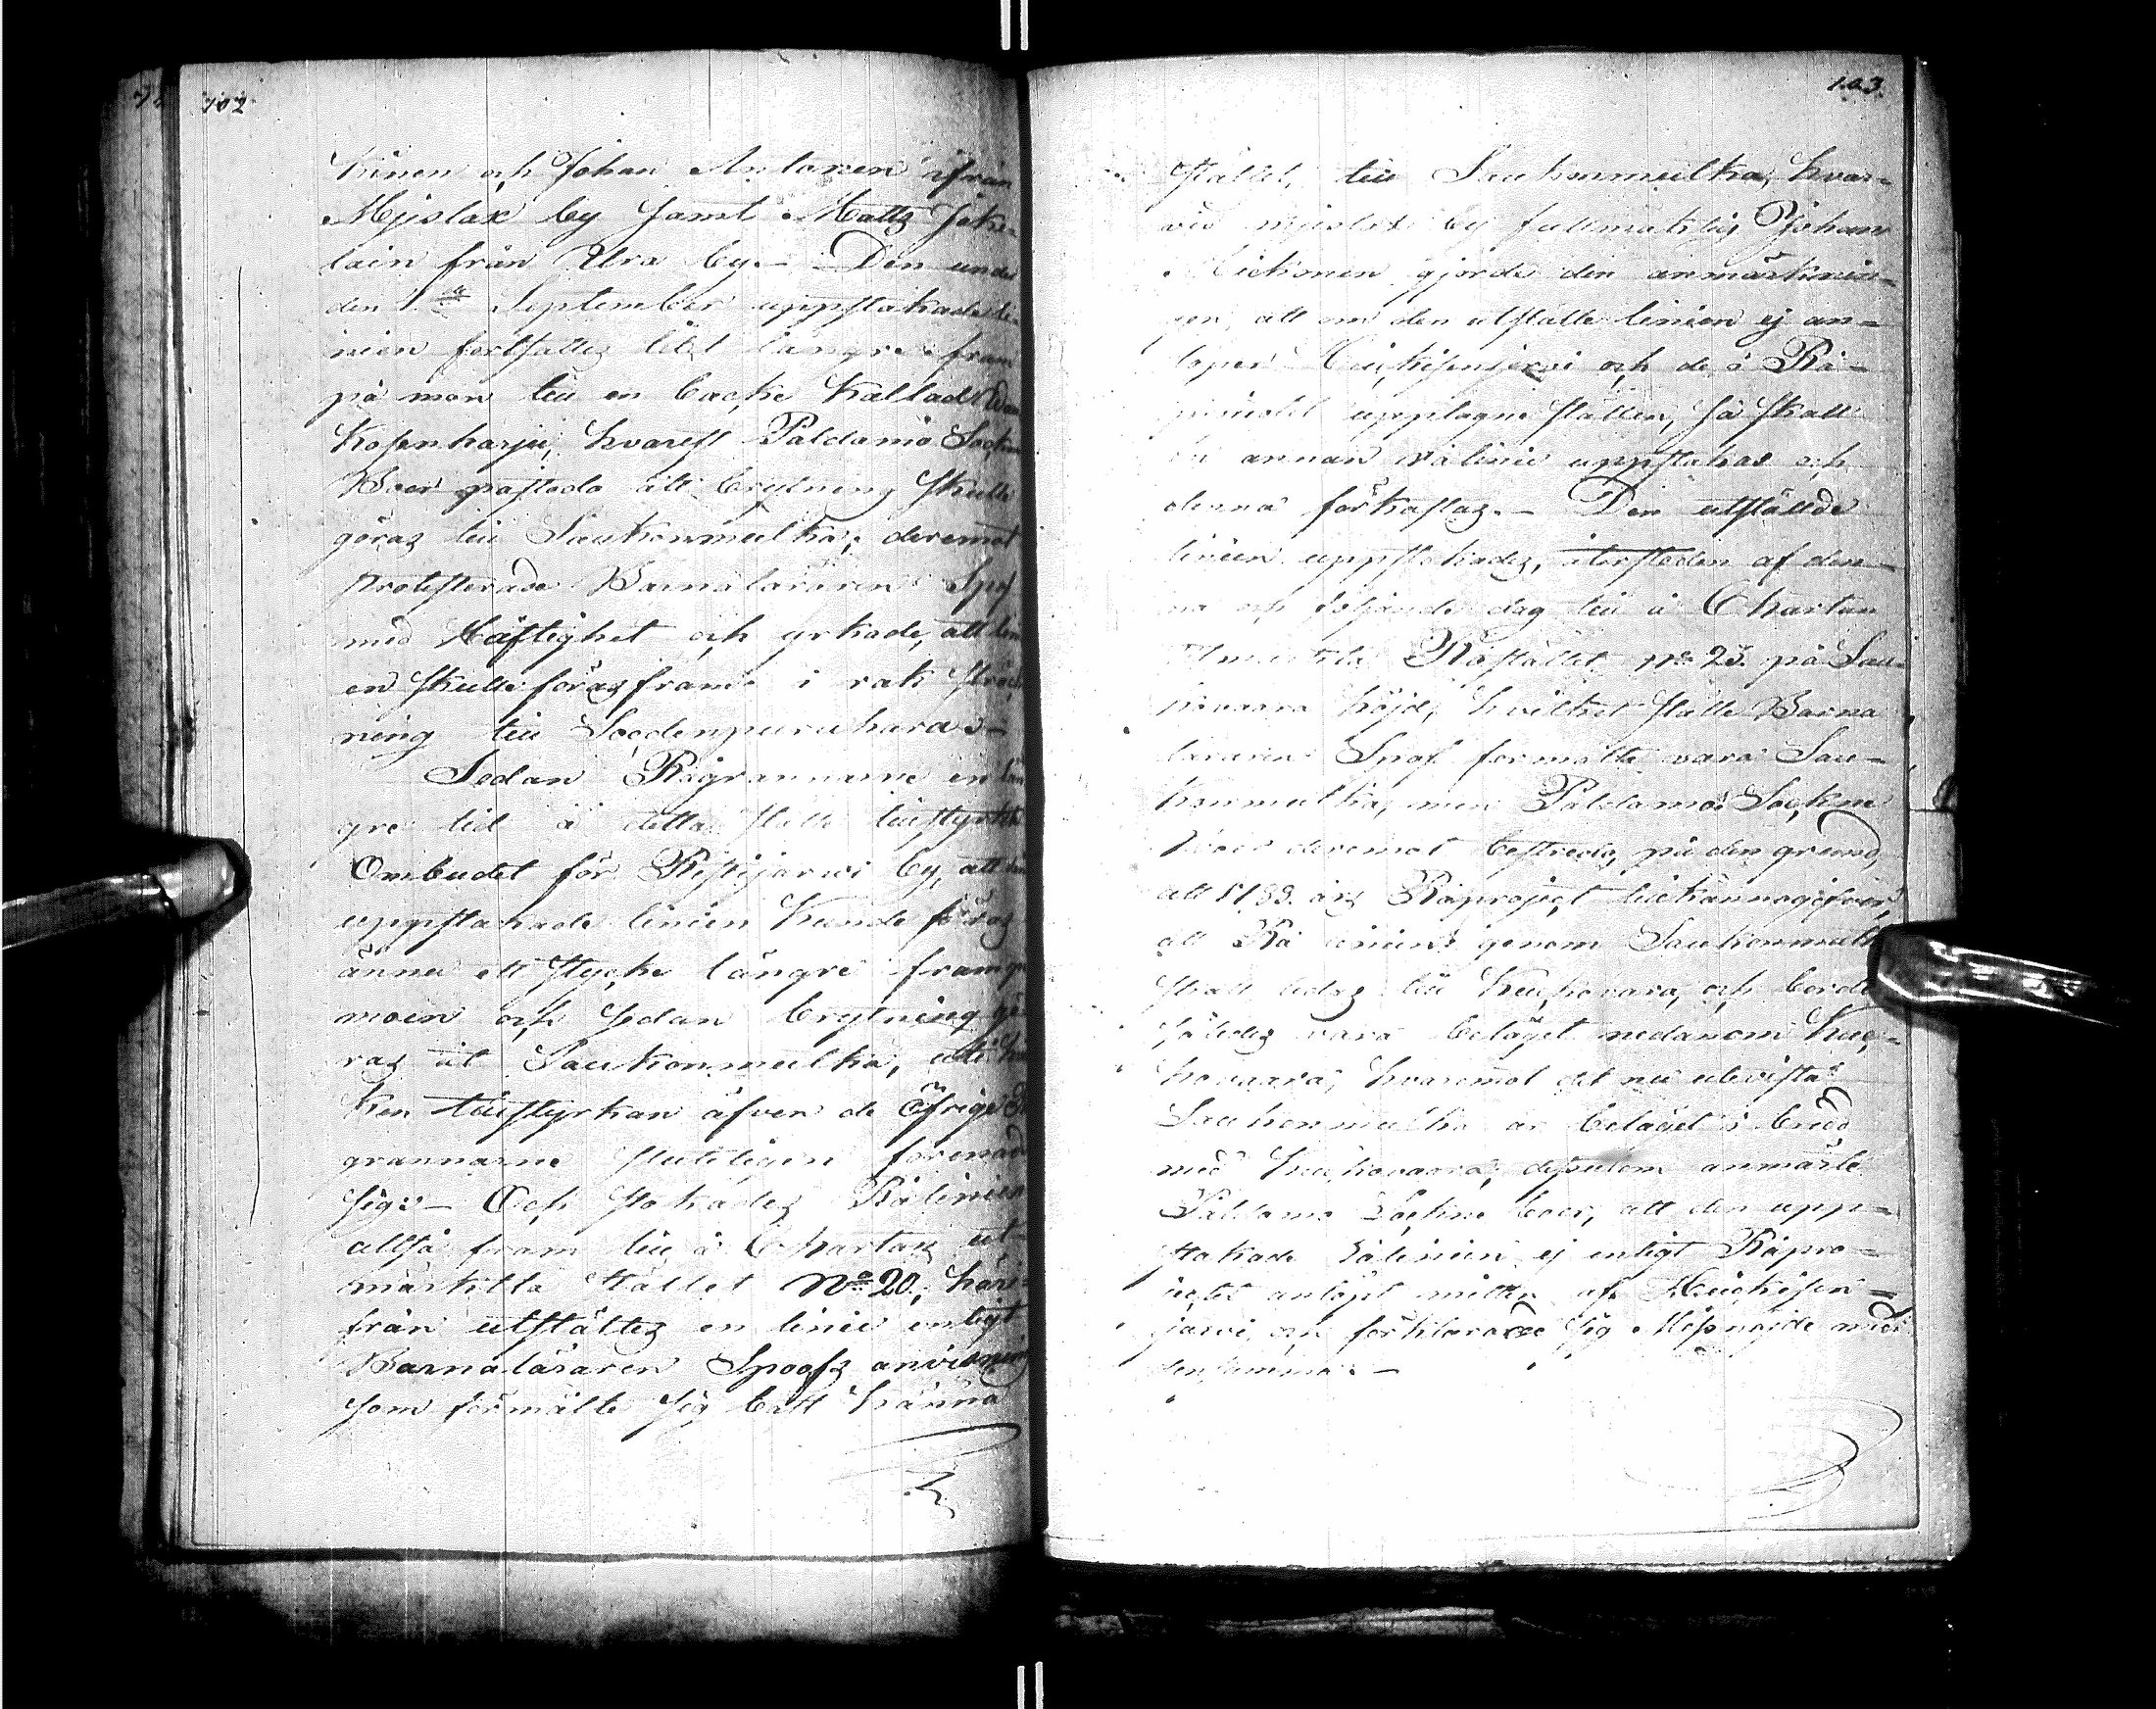 102
kinen och Johan Antonen ifrån
Myslax by samt Matts Jöke-
lain från Utra by. – Den under
den 1:de September uppstakade li-
nien fortsattes litet längre fram
på mon till en backe kallad
Kosenharju, hvarest Paldamo Sockne
Boer påstodo att brytning skulle
göras till Saukonmulka; deremot
protesterade Barnaläraren Spof
med häftighet och yrkade, att lini
en skulle föras fram i rak sträck
ning till Soodenpuruhara. –
Sedan Rågrannarne en län
gre tid å detta ställe tillstyrkte
Ombudet för Ristijarwi by, att den
uppstakade linien kunde föras
ännu ett stycke längre fram på
moen och sedan brytning gö
ras åt Saukonmulka, uti hvil
ken tillstyrkan äfven de öfrige Rå
grannarne sluteligen förenade
sig. – Och stakades Rålinien
altså fram till å Chartan ut-
märkta stället No 20, häri-
från utstältes en linie enligt
Barnaläraren Spoofs anvisning
som förmälte sig bäst känna
103.
stället, till Saukonmulka, hvar-
vid Myslax by fullmäktig Johan
Mickonen gjorde den anmärknin-
gen, att om den utstälte linien ej an-
löper och de i Rå-
upptagne ställen, så skall
en annan rålinie uppstakas och
denna förkastas. – Den utstälde
linien uppstakades, återstoden af den-
na och följande dag till å Chartan
utmärkta Råstället No 23. på Sau-
kovaara höjd, hvilket ställe Barna
läraren Spof förmälte vara Sau-
konmulka, men Paldamo Sockne
Boer deremot bestredo, på den grund,
att 1783. års Råproject tillkännagifver,
att Rå linien genom Saukonmulka
skall ledas till Kuckovara, och borde
således vara belägit nedanom Kuc-
kovaara, hvaremot det nu utvista
Saukonmulka är belägit i bredd
med Kuckovaara; dessutom anmärkte
Paldamo Sockne boer, att den upp-
stakade Rålinien ej enligt Råpro-
jectet anlöpt midten af Kuckisen-
järvi, och förklarade sig missnöjde med
densamma. –